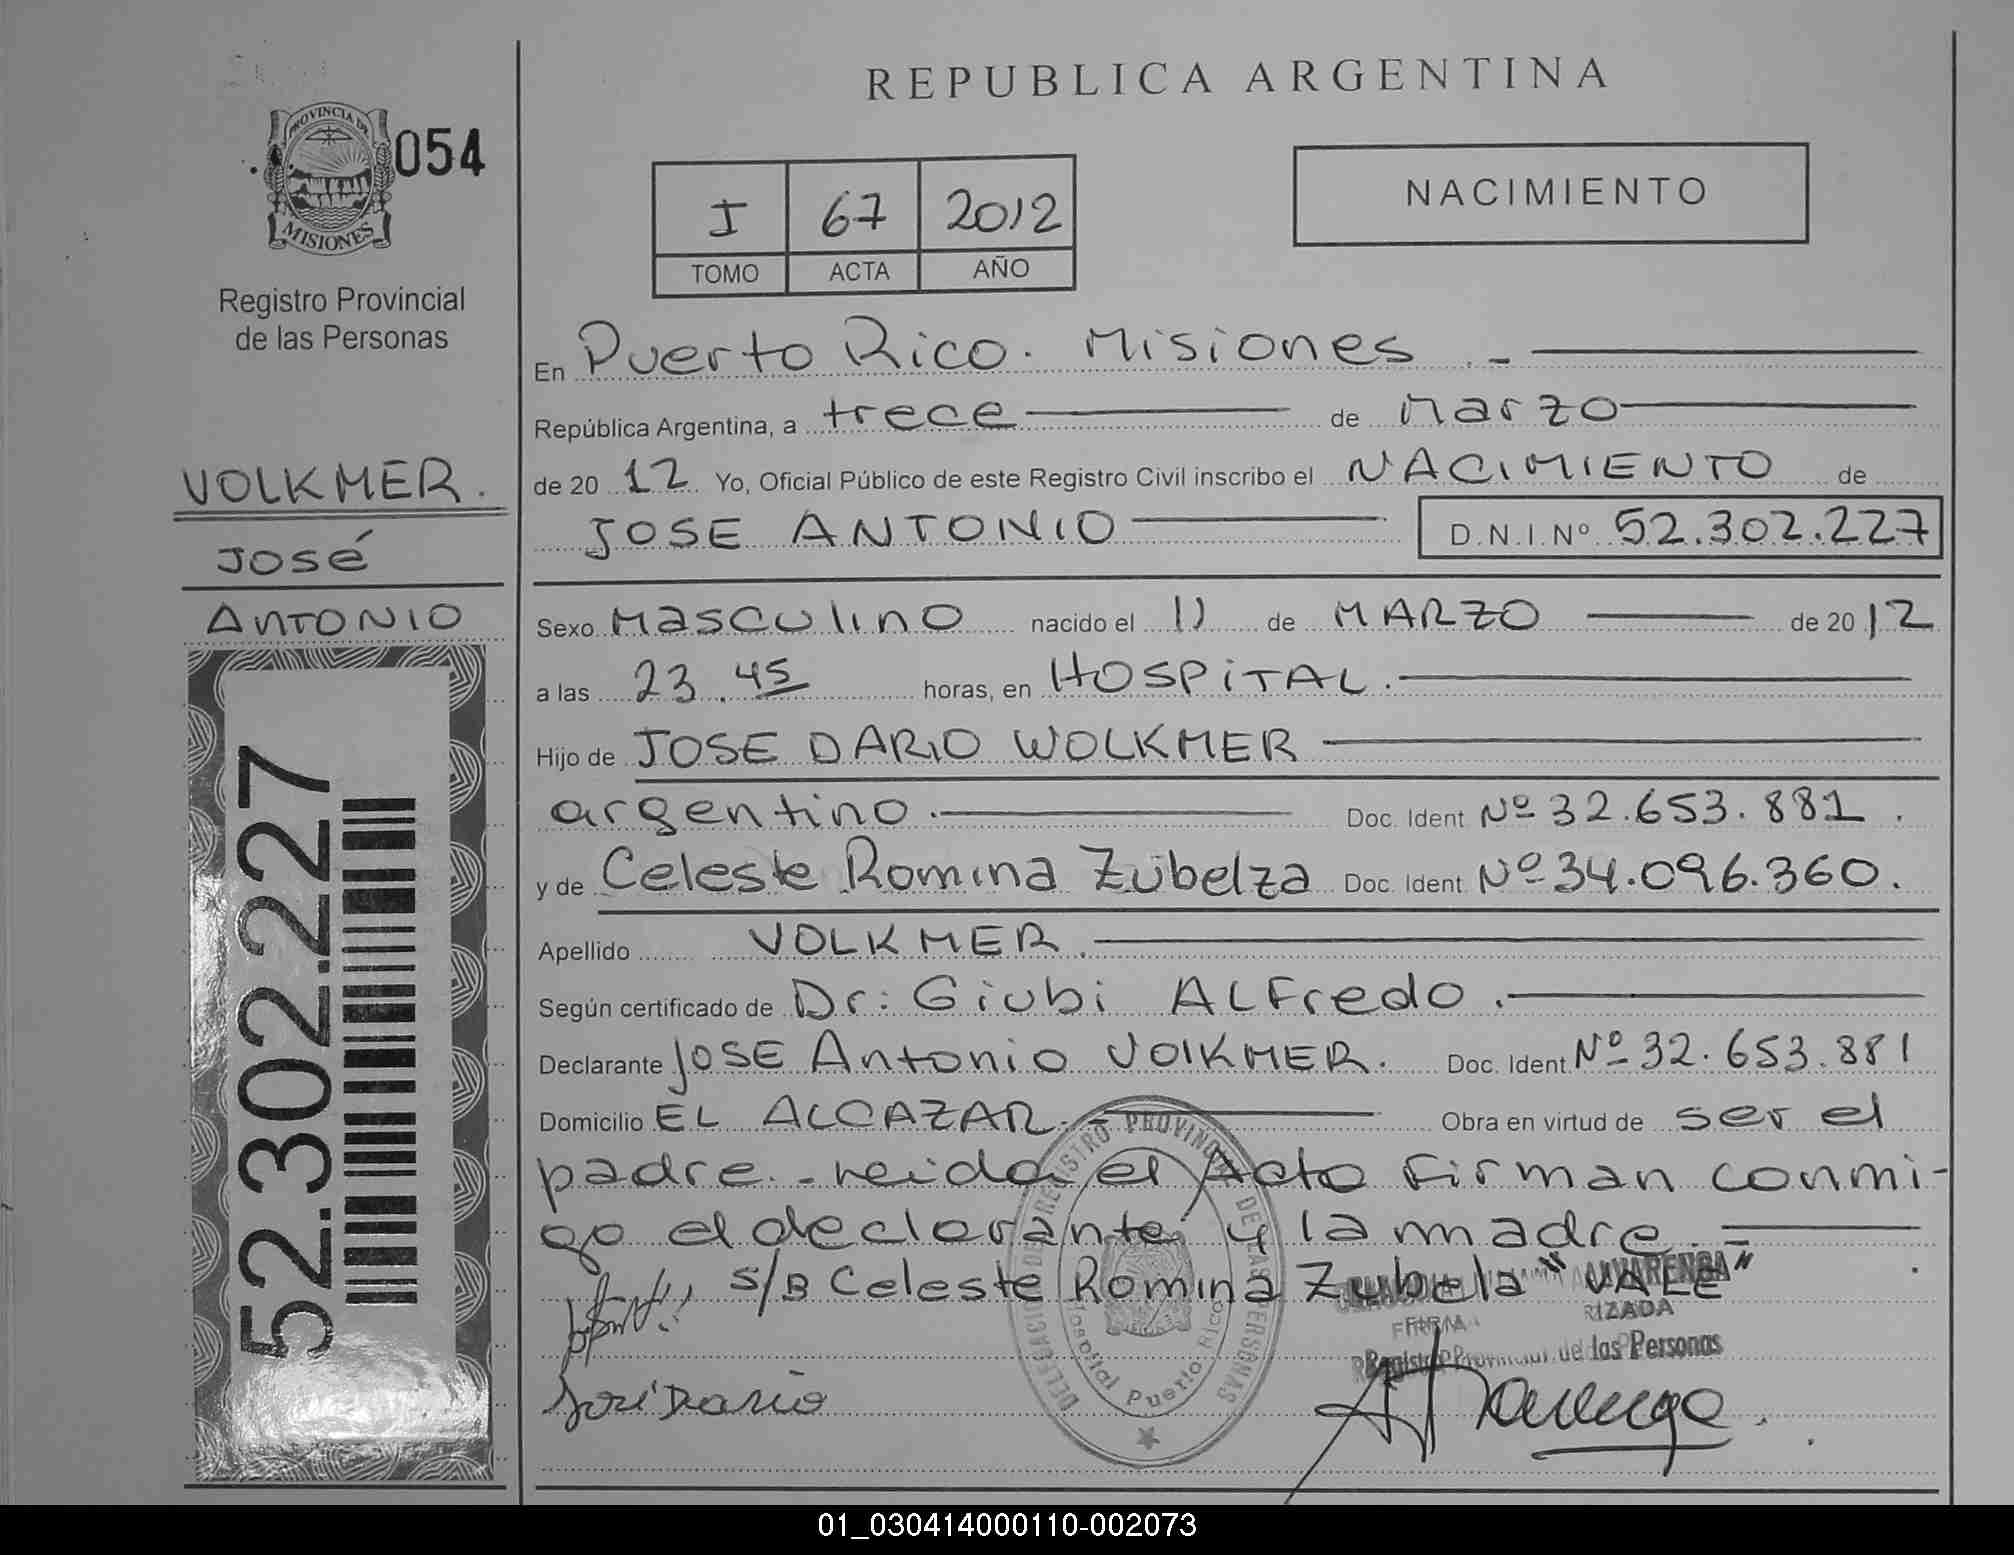 PROVINCIA DE
MISIONES
054
Registro Provincial
de las Personas
VOLKMER.
José
ANTONIO
52.302.227
REPUBLICA ARGENTINA
I 67 2012
TOMO ACTA AÑO
NACIMIENTO
En Puerto Rico. Misiones .-
República Argentina, a trece de Marzo
de 20 12 Yo, Oficial Público de este Registro Civil inscribo el NACIMIENTO de
JOSE ANTONIO D.N.I.Nº 52.302.227
Sexo Masculino nacido el 11 de MARZO de 2012
a las 23.45 horas, en HOSPITAL.
Hijo de JOSE DARIO WOLKMER
argentino. Doc. Ident Nº 32.653.881.
y de Celeste Romina Zübelza Doc. Ident Nº 34.096.360.
Apellido VOLKMER.
Según certificado de Dr: Giubi ALFredo.
Declarante JOSE Antonio VOlKMER. Doc. Ident. Nº 32.653.881
Domicilio EL ALCAZAR.- Obra en virtud de ser el
padre.- leida el Acto Firman conmi-
go el declarante y la madre.-
S/B Celeste Romina Zubela "VALE"
ALVARENGA
FIRMA RIZADA
Registro Provincial de las Personas
José Dario
DELEGACIO DE REGISTRO PROVINCIAL DE LAS PERSONAS
Hospital Puerto Rico
01_030414000110-002073